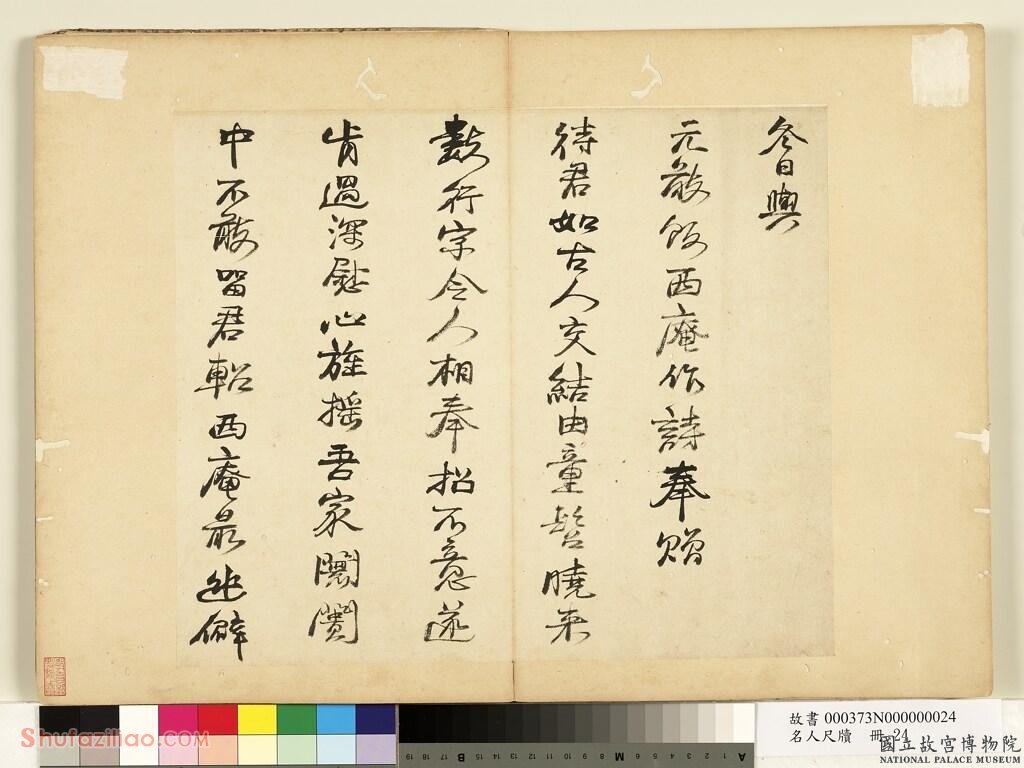 冬日與
元嚴飯西庵作詩奉贈
待君如古人交結由童髫曉來
數行字令人相奉招不意遂
肯過深慰心旌搖吾家闤闠
中不敢留君軺西庵最近僻
Shufaziliao.com
故書 000373N000000024
名人尺牘 冊 24
國立故宮博物院
NATIONAL PALACE MUSEUM